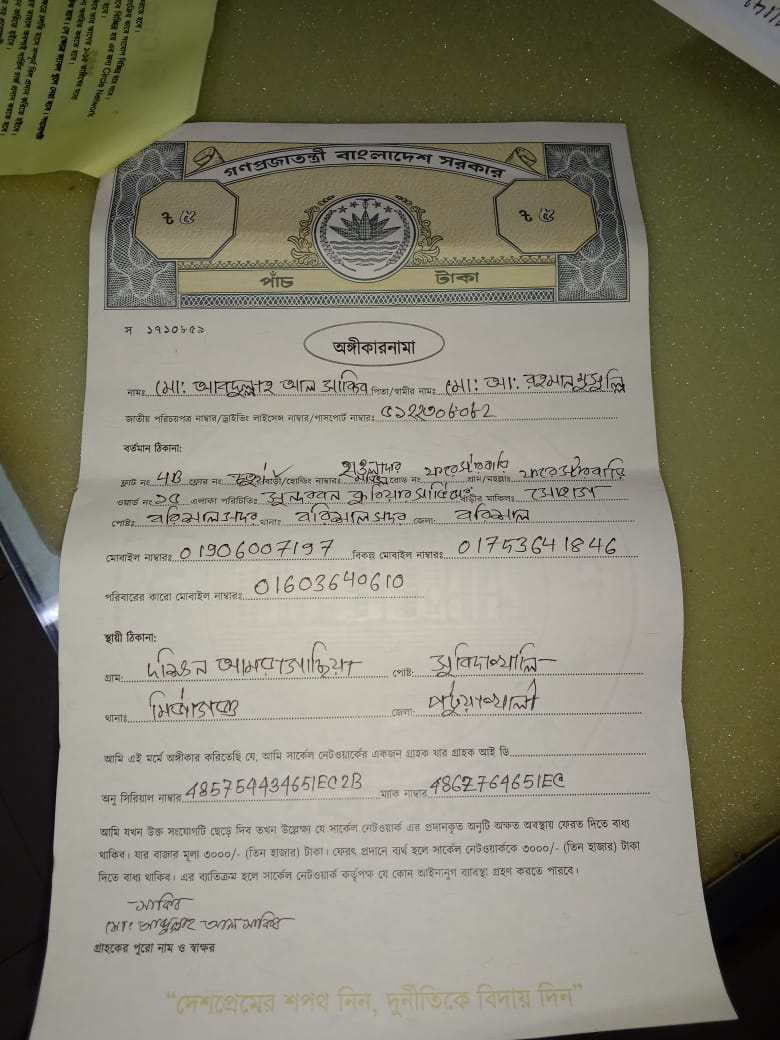 গণপ্রজাতন্ত্রী বাংলাদেশ সরকার
৳ ৫
৳ ৫
পাঁচ টাকা
স ১৭১০৮৫৯
অঙ্গীকারনামা
নামঃ মো: আবদুল্লাহ আল সাকিব পিতা/স্বামীর নামঃ মো: আ: রহমান মুসুল্লি
জাতীয় পরিচয়পত্র নাম্বার/ড্রাইভিং লাইসেন্স নাম্বার/পাসপোর্ট নাম্বারঃ
বর্তমান ঠিকানা:
ফ্লাট নং 4B ফ্লোর নং বাড়ী/হোল্ডিং নাম্বারঃ হাওলাদার রোড নং গ্রাম/মহল্লাঃ
ওয়ার্ড নং এলাকা পরিচিতিঃ সুন্দরবন কুরিয়ার সার্ভিসের বাড়ীর মালিকঃ
পোষ্টঃ বরিশাল সদর থানাঃ বরিশাল সদর জেলাঃ বরিশাল
মোবাইল নাম্বারঃ 01906007197 বিকল্প মোবাইল নাম্বারঃ 01753641846
পরিবারের কারো মোবাইল নাম্বারঃ 01603640610
স্থায়ী ঠিকানা:
গ্রাম: দক্ষিন আমরাগাছিয়া পোষ্ট: সুবিদখালি
থানাঃ মির্জাগঞ্জ জেলা: পটুয়াখালী
আমি এই মর্মে অঙ্গীকার করিতেছি যে, আমি সার্কেল নেটওয়ার্কের একজন গ্রাহক যার গ্রাহক আই ডি
অনু সিরিয়াল নাম্বার 485754434651EC2B ম্যাক নাম্বার 4862764651EC
আমি যখন উক্ত সংযোগটি ছেড়ে দিব তখন উল্লেক্ষ্য যে সার্কেল নেটওয়ার্ক এর প্রদানকৃত অনুটি অক্ষত অবস্থায় ফেরত দিতে বাধ্য
থাকিব। যার বাজার মূল্য ৩০০০/- (তিন হাজার) টাকা। ফেরৎ প্রদানে ব্যর্থ হলে সার্কেল নেটওয়ার্ককে ৩০০০/- (তিন হাজার) টাকা
দিতে বাধ্য থাকিব। এর ব্যতিক্রম হলে সার্কেল নেটওয়ার্ক কর্তৃপক্ষ যে কোন আইনানুগ ব্যবস্থা গ্রহণ করতে পারবে।
সাকিব
মো: আব্দুল্লাহ আল সাকিব
গ্রাহকের পুরো নাম ও স্বাক্ষর
“দেশপ্রেমের শপথ নিন, দুর্নীতিকে বিদায় দিন”